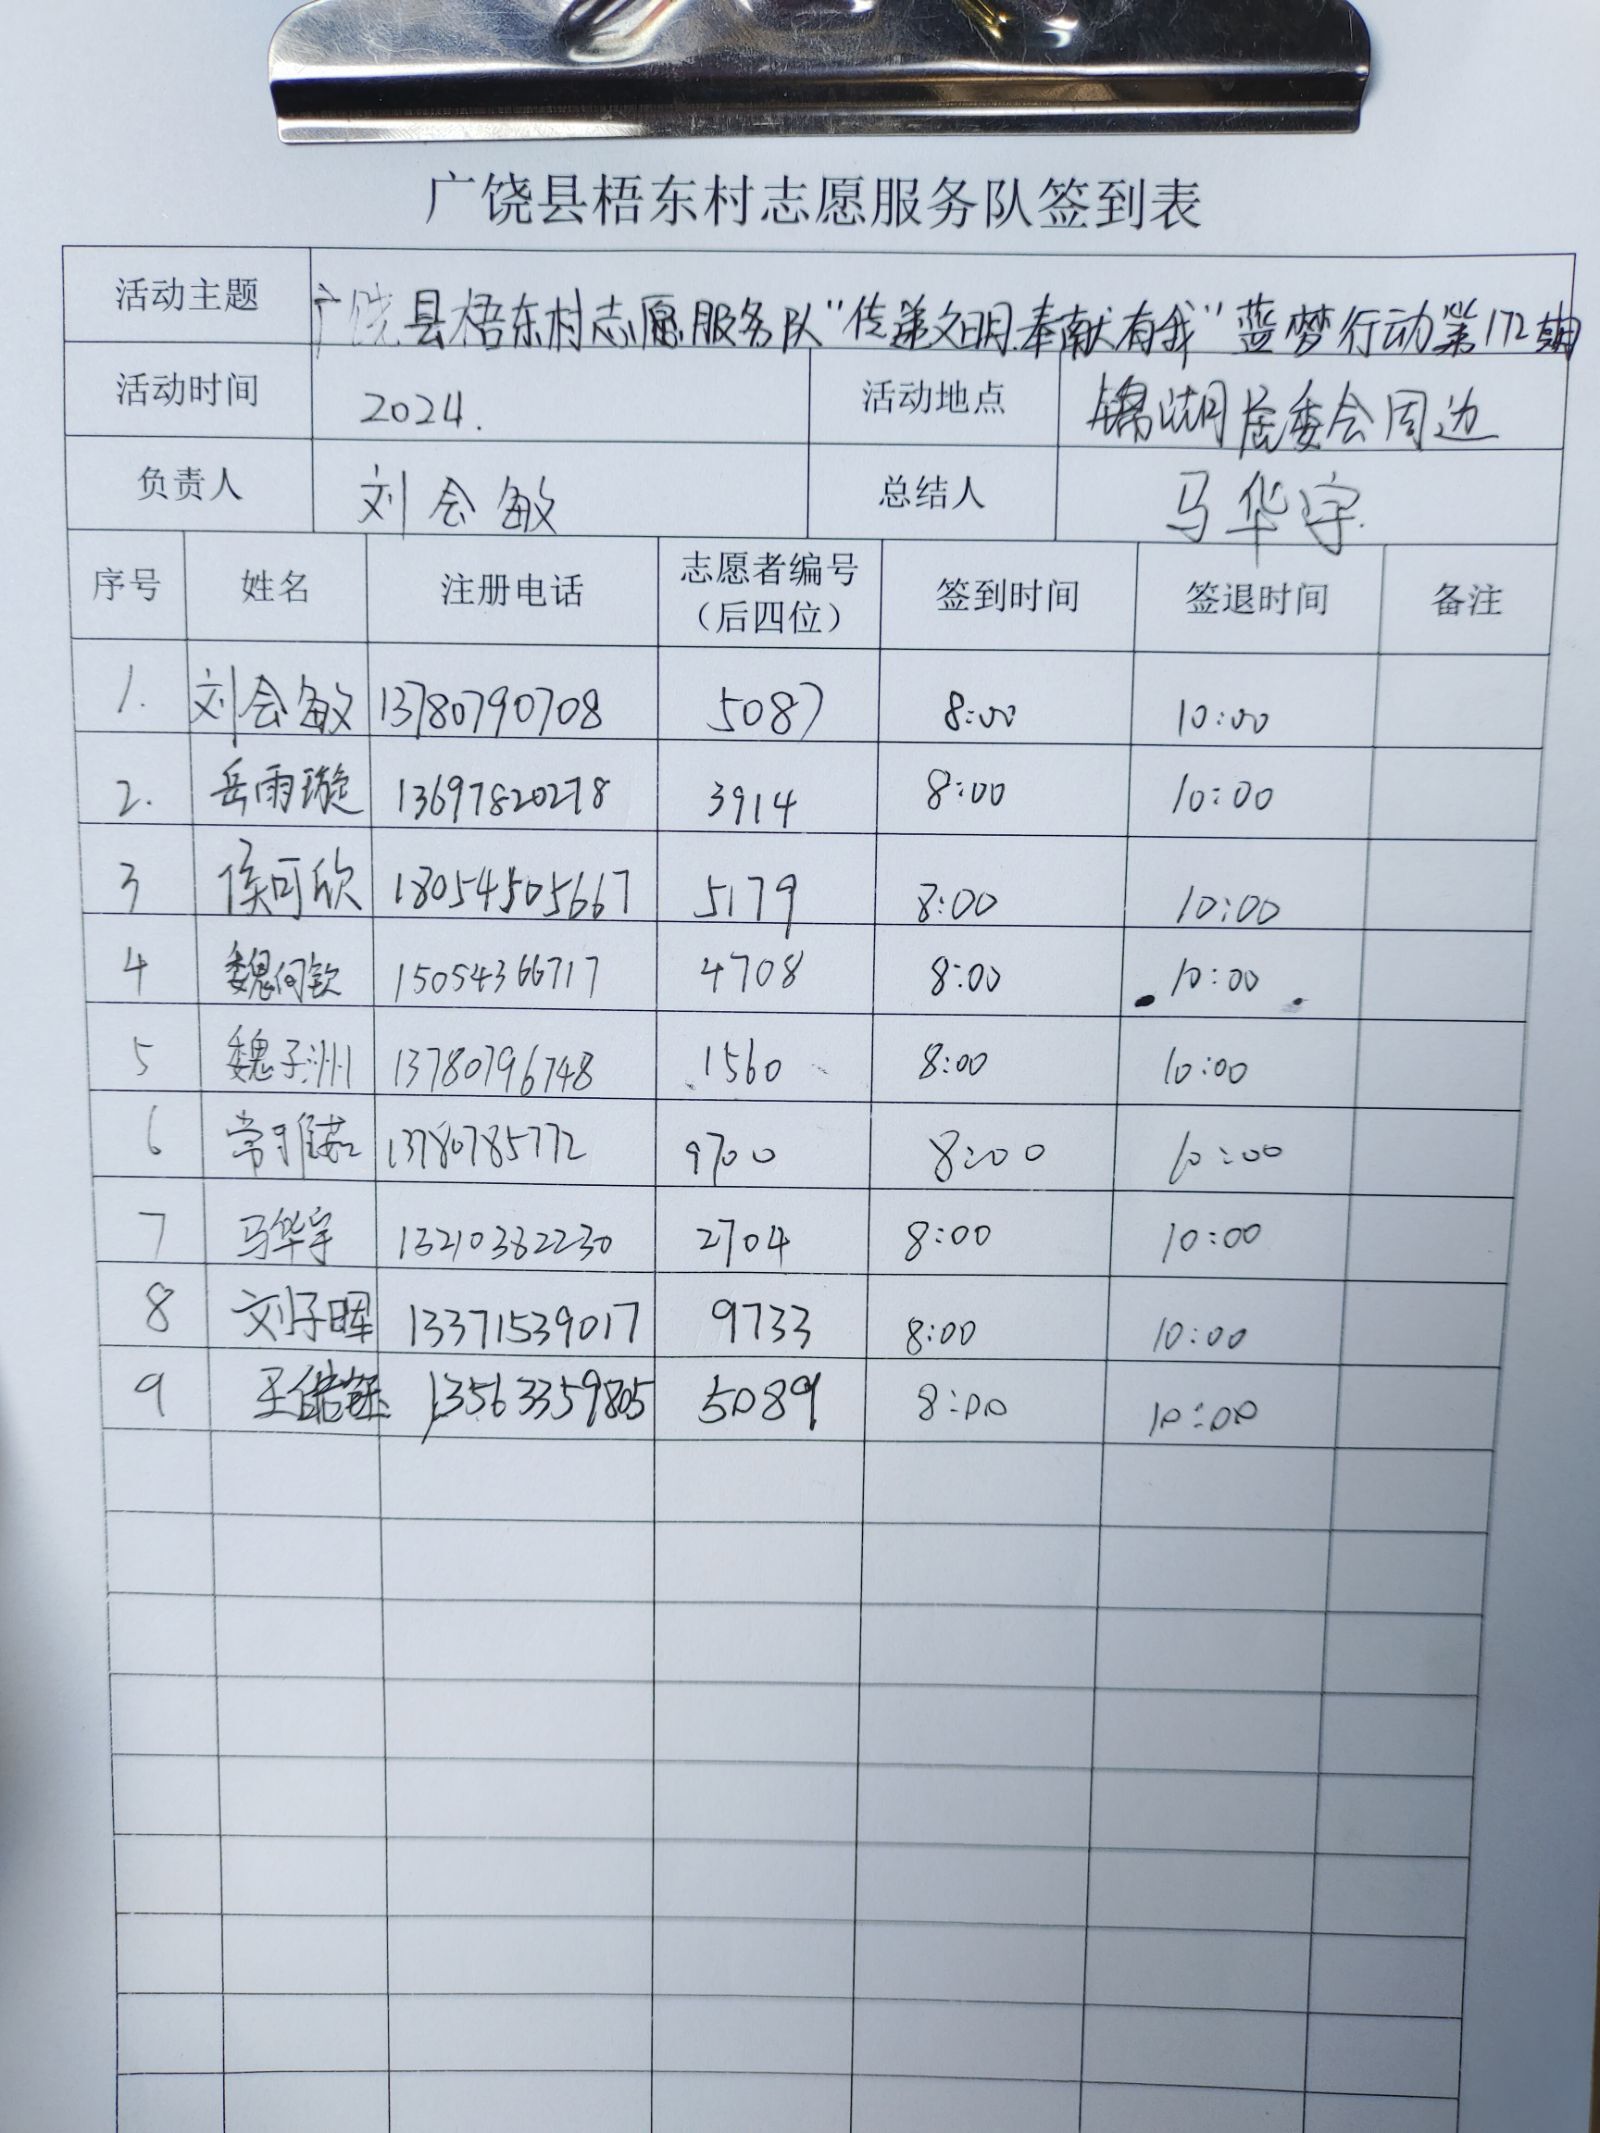 广饶县梧东村志愿服务队签到表
活动主题 广饶县梧东村志愿服务队“传递文明.奉献有我”蓝梦行动第172期
活动时间 2024. 活动地点 锦湖居委会周边
负责人 刘会敏 总结人 马华宇
序号 姓名 注册电话 志愿者编号（后四位） 签到时间 签退时间 备注
1. 刘会敏 13780790708 5087 8:00 10:00
2. 岳雨璇 13697820278 3914 8:00 10:00
3 侯可欣 18054505667 5179 8:00 10:00
4 魏何钦 15054366717 4708 8:00 10:00
5 魏子洲 13780796748 1560 8:00 10:00
6 常雅茹 13780785772 9700 8:00 10:00
7 马华宇 13210382230 2704 8:00 10:00
8 刘子晖 13371539017 9733 8:00 10:00
9 王皓钰 13563359805 5089 8:00 10:00